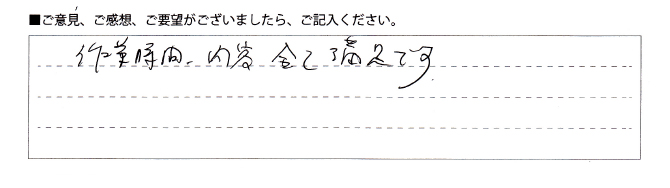 ■ご意見、ご感想、ご要望がございましたら、ご記入ください。
作業時間、内容 全て満足です